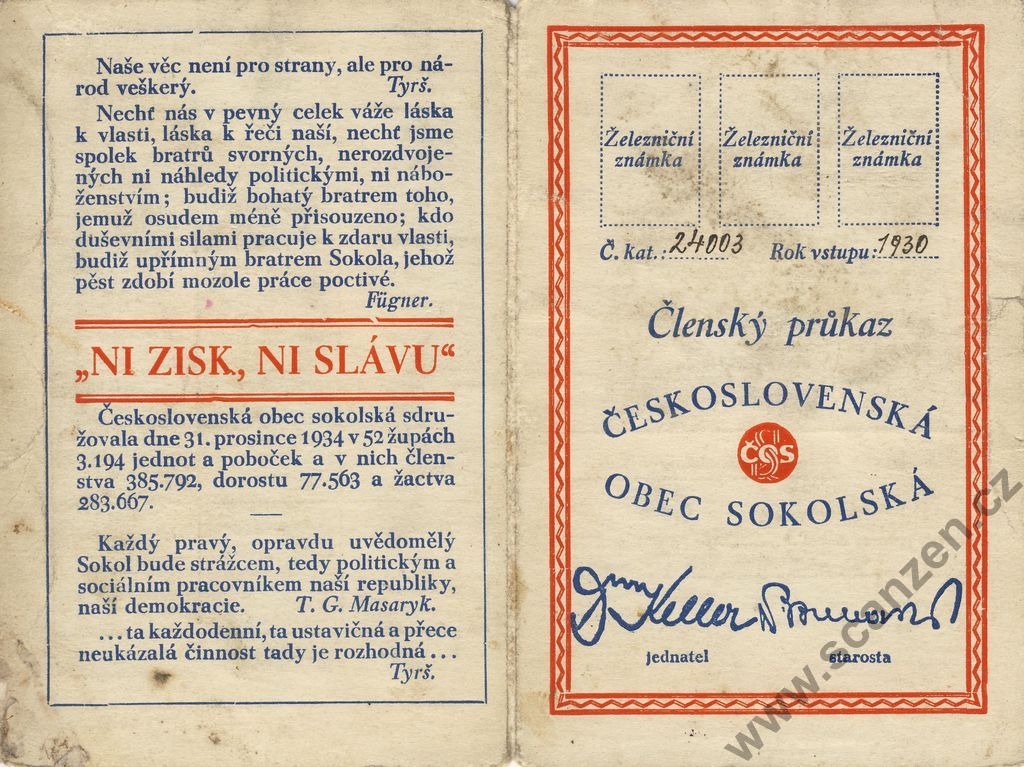 Naše věc není pro strany, ale pro ná-
rod veškerý. Tyrš.
Nechť nás v pevný celek váže láska
k vlasti, láska k řeči naší, nechť jsme
spolek bratrů svorných, nerozdvoje-
ných ni náhledy politickými, ni nábo-
ženstvím; budiž bohatý bratrem toho,
jemuž osudem méně přisouzeno; kdo
duševními silami pracuje k zdaru vlasti,
budiž upřímným bratrem Sokola, jehož
pěst zdobí mozole práce poctivé.
Fügner.
„NI ZISK, NI SLÁVU“
Československá obec sokolská sdru-
žovala dne 31. prosince 1934 v 52 župách
3.194 jednot a poboček a v nich člen-
stva 385.792, dorostu 77.563 a žactva
283.667.
Každý pravý, opravdu uvědomělý
Sokol bude strážcem, tedy politickým a
sociálním pracovníkem naší republiky,
naší demokracie. T. G. Masaryk.
...ta každodenní, ta ustavičná a přece
neukázalá činnost tady je rozhodná...
Tyrš.
Železniční známka
Železniční známka
Železniční známka
Č. kat.: 24003 Rok vstupu: 1930
Členský průkaz
ČESKOSLOVENSKÁ
ČOS
OBEC SOKOLSKÁ
Keller
jednatel starosta
www.scanzen.cz